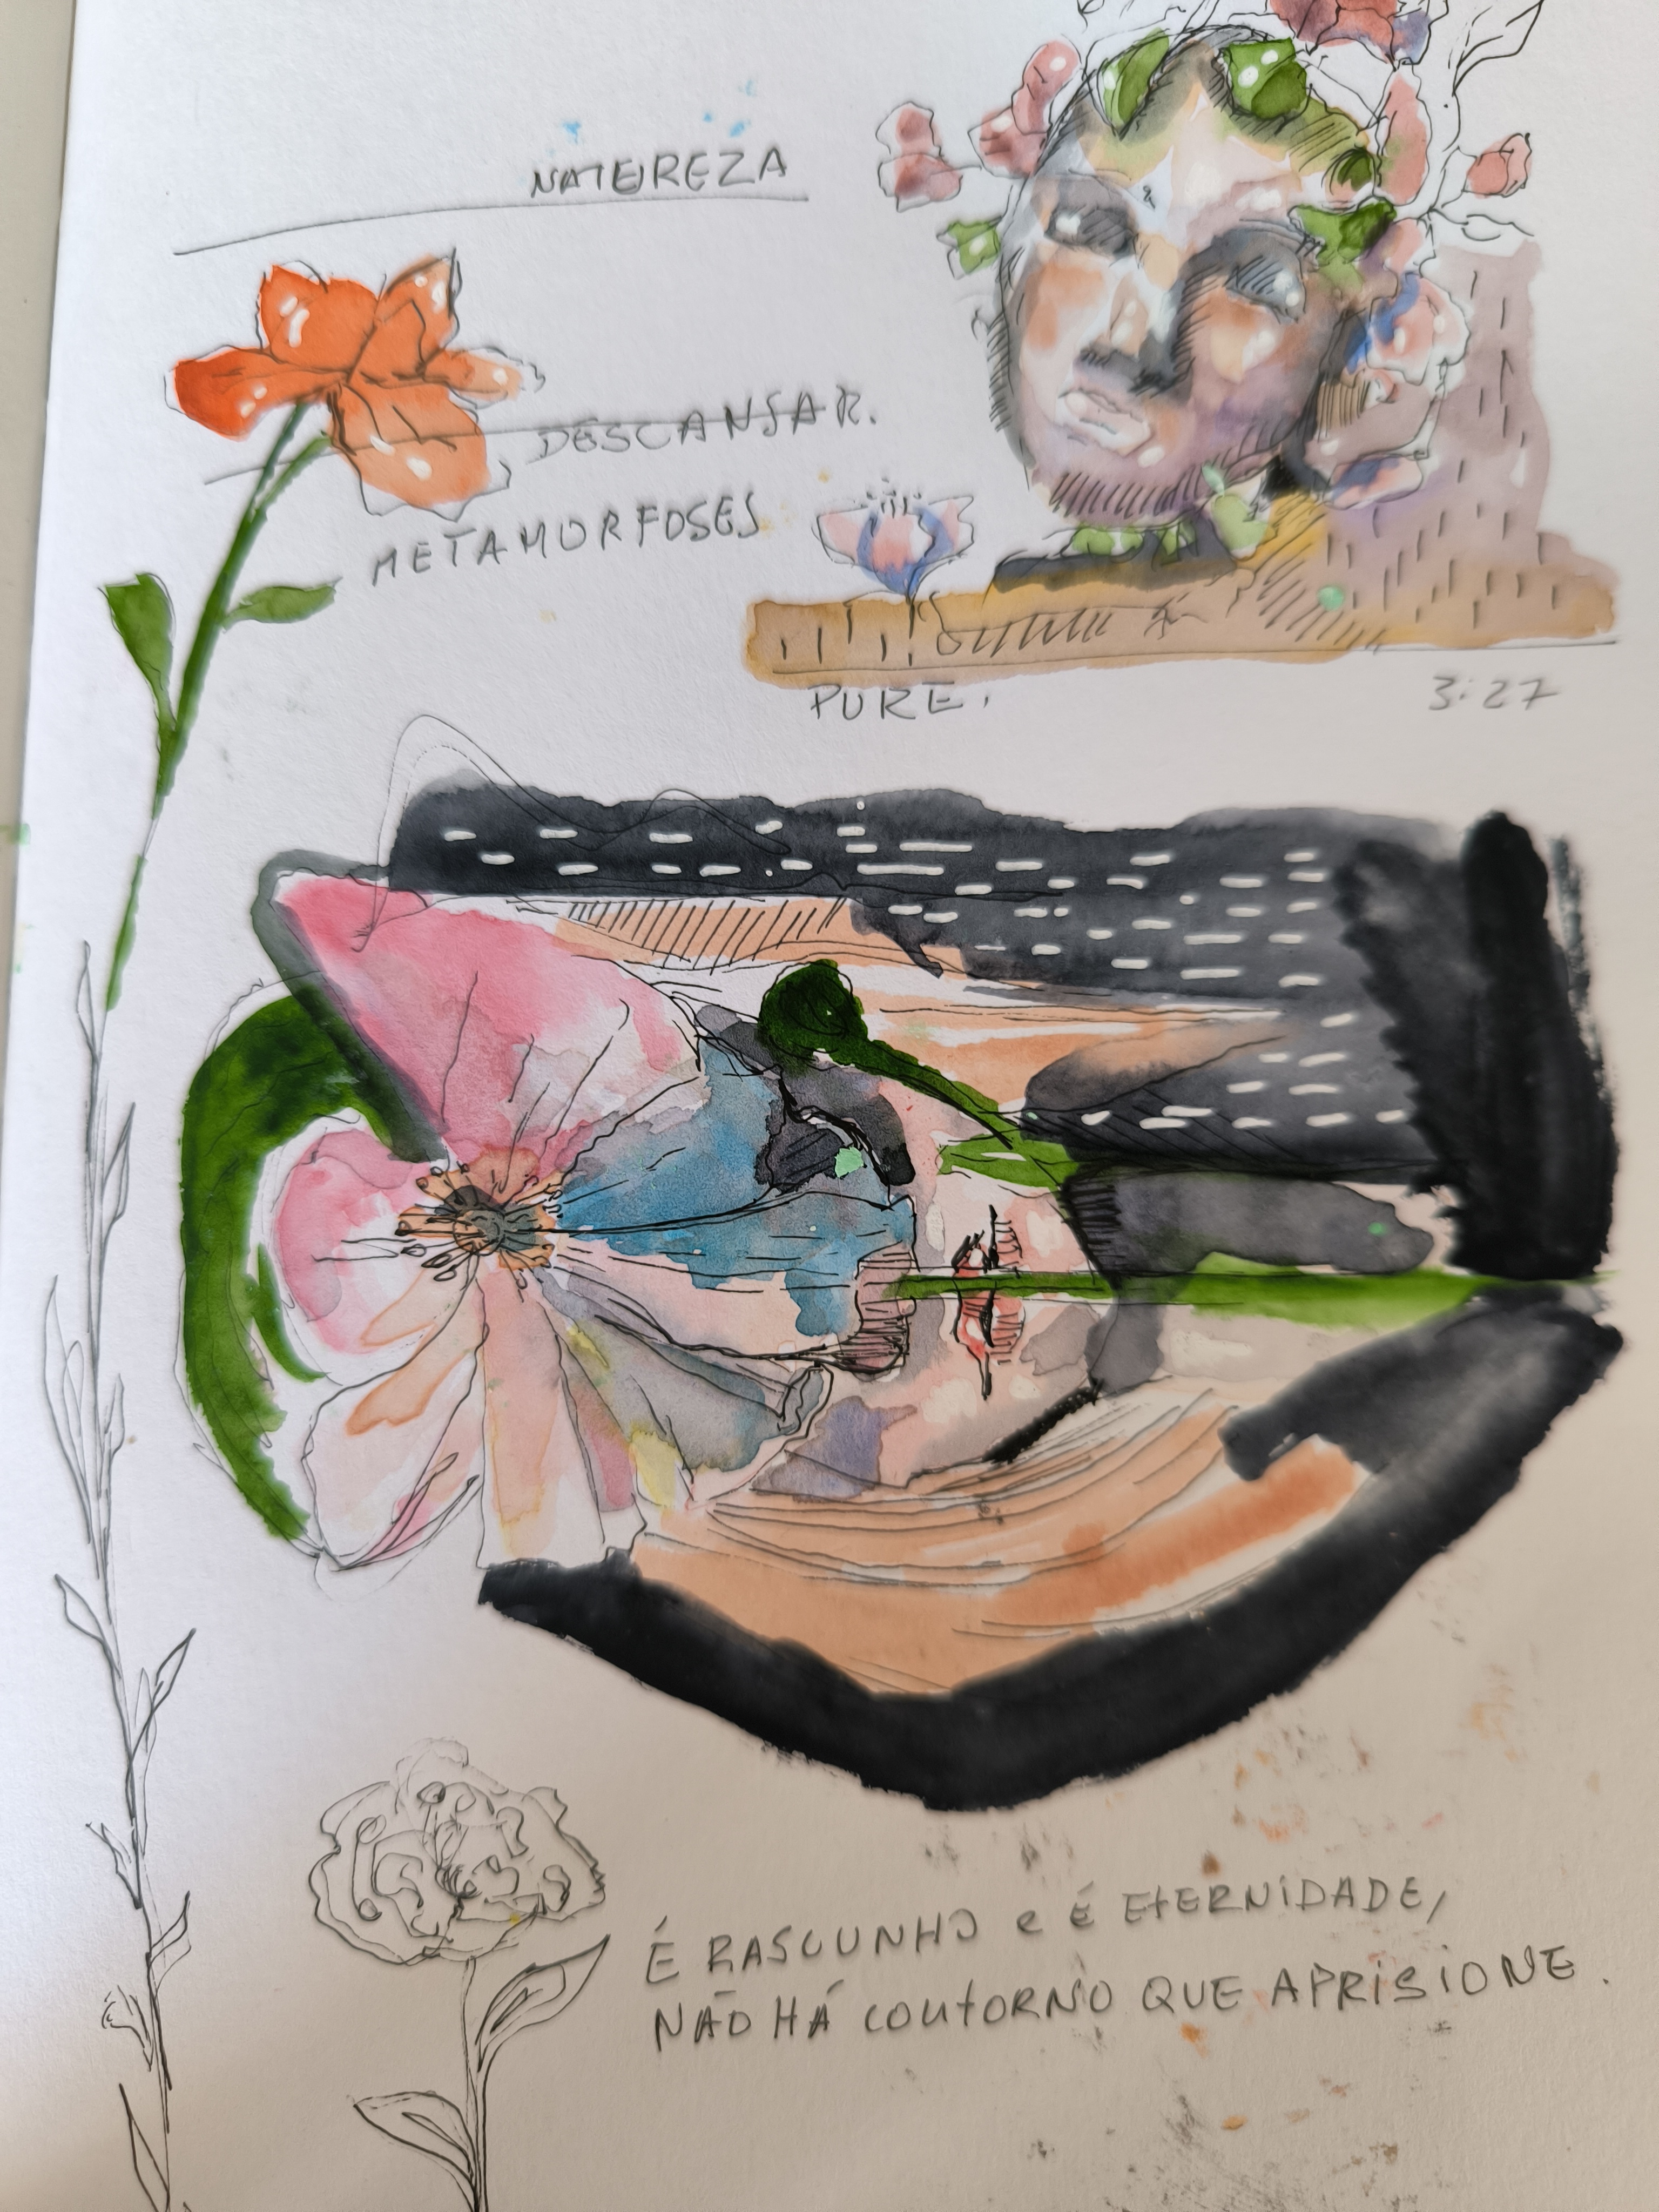 NATUREZA
DESCANSAR.
METAMORFOSES
PURE.
3:27
É RASCUNHO e É ETERNIDADE,
NÃO HÁ CONTORNO QUE APRISIONE.